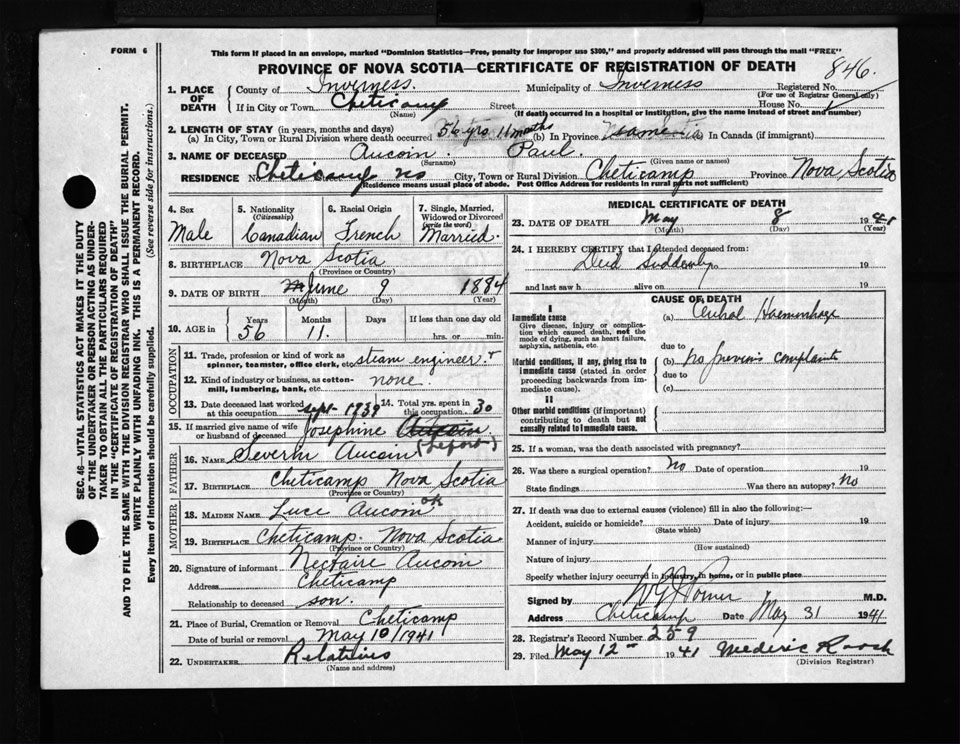 FORM 6
This form if placed in an envelope, marked "Dominion Statistics—Free, penalty for improper use $300," and properly addressed will pass through the mail "FREE"
PROVINCE OF NOVA SCOTIA—CERTIFICATE OF REGISTRATION OF DEATH
846.
SEC. 46—VITAL STATISTICS ACT MAKES IT THE DUTY
OF THE UNDERTAKER OR PERSON ACTING AS UNDER-
TAKER TO OBTAIN ALL THE PARTICULARS REQUIRED
IN THE "CERTIFICATE OF REGISTRATION OF DEATH"
AND TO FILE THE SAME WITH THE DIVISION REGISTRAR WHO SHALL ISSUE THE BURIAL PERMIT.
WRITE PLAINLY WITH UNFADING INK. THIS IS A PERMANENT RECORD.
Every item of Information should be carefully supplied. (See reverse side for instructions.)
1. PLACE OF DEATH
County of Inverness. Municipality of Inverness Registered No.
(For use of Registrar General only)
If in City or Town Cheticamp Street House No.
(Name) (If death occurred in a hospital or institution, give the name instead of street and number)
2. LENGTH OF STAY (in years, months and days)
(a) In City, Town or Rural Division where death occurred 56 yrs 11 months (b) In Province (c) In Canada (if immigrant)
3. NAME OF DECEASED Aucoin Paul.
(Surname) (Given name or names)
RESIDENCE No. Cheticamp NS City, Town or Rural Division Cheticamp Province Nova Scotia
(Residence means usual place of abode. Post Office Address for residents in rural parts not sufficient)
4. Sex Male
5. Nationality (Citizenship) Canadian
6. Racial Origin French
7. Single, Married, Widowed or Divorced (write the word) Married.
8. BIRTHPLACE Nova Scotia
(Province or Country)
9. DATE OF BIRTH June 9 1884
(Month) (Day) (Year)
10. AGE in Years Months Days If less than one day old
56 11. hrs. or min.
OCCUPATION
11. Trade, profession or kind of work as spinner, teamster, office clerk, etc. steam engineer.
12. Kind of industry or business, as cotton-mill, lumbering, bank, etc. none.
13. Date deceased last worked at this occupation Sept 1939 14. Total yrs. spent in this occupation 30
15. If married give name of wife or husband of deceased Josephine Aucoin (Lefort)
FATHER
16. NAME Severin Aucoin
17. BIRTHPLACE Cheticamp Nova Scotia
(Province or Country)
MOTHER
18. MAIDEN NAME Luce Aucoin OK
19. BIRTHPLACE Cheticamp. Nova Scotia
(Province or Country)
20. Signature of informant Nectaire Aucoin
Address Cheticamp
Relationship to deceased son.
21. Place of Burial, Cremation or Removal Cheticamp
Date of burial or removal May 10/1941
22. UNDERTAKER Relatives
(Name and address)
MEDICAL CERTIFICATE OF DEATH
23. DATE OF DEATH May 8 1941
(Month) (Day) (Year)
24. I HEREBY CERTIFY that I attended deceased from:
Died Suddenly 19
and last saw h alive on 19
CAUSE OF DEATH
I
Immediate cause
Give disease, injury or complication which caused death, not the mode of dying, such as heart failure, asphyxia, asthenia, etc.
(a) Haemorrhage
due to
Morbid conditions, if any, giving rise to immediate cause (stated in order proceeding backwards from immediate cause).
(b) No previous complaint
due to
(c)
II
Other morbid conditions (if important) contributing to death but not causally related to immediate cause.
25. If a woman, was the death associated with pregnancy?
26. Was there a surgical operation? No Date of operation 19
State findings Was there an autopsy? No
27. If death was due to external causes (violence) fill in also the following:—
Accident, suicide or homicide? Date of injury 19
(State which)
Manner of injury
(How sustained)
Nature of injury
Specify whether injury occurred in industry, in home, or in public place
Signed by M.D.
Address Cheticamp Date May 31 1941
28. Registrar's Record Number 259
29. Filed May 12 1941 Mederic
(Division Registrar)